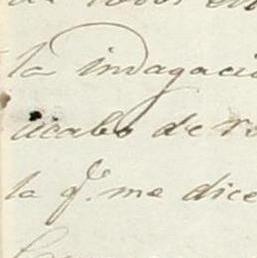 la indagació
acabo de re
la q.e me dice